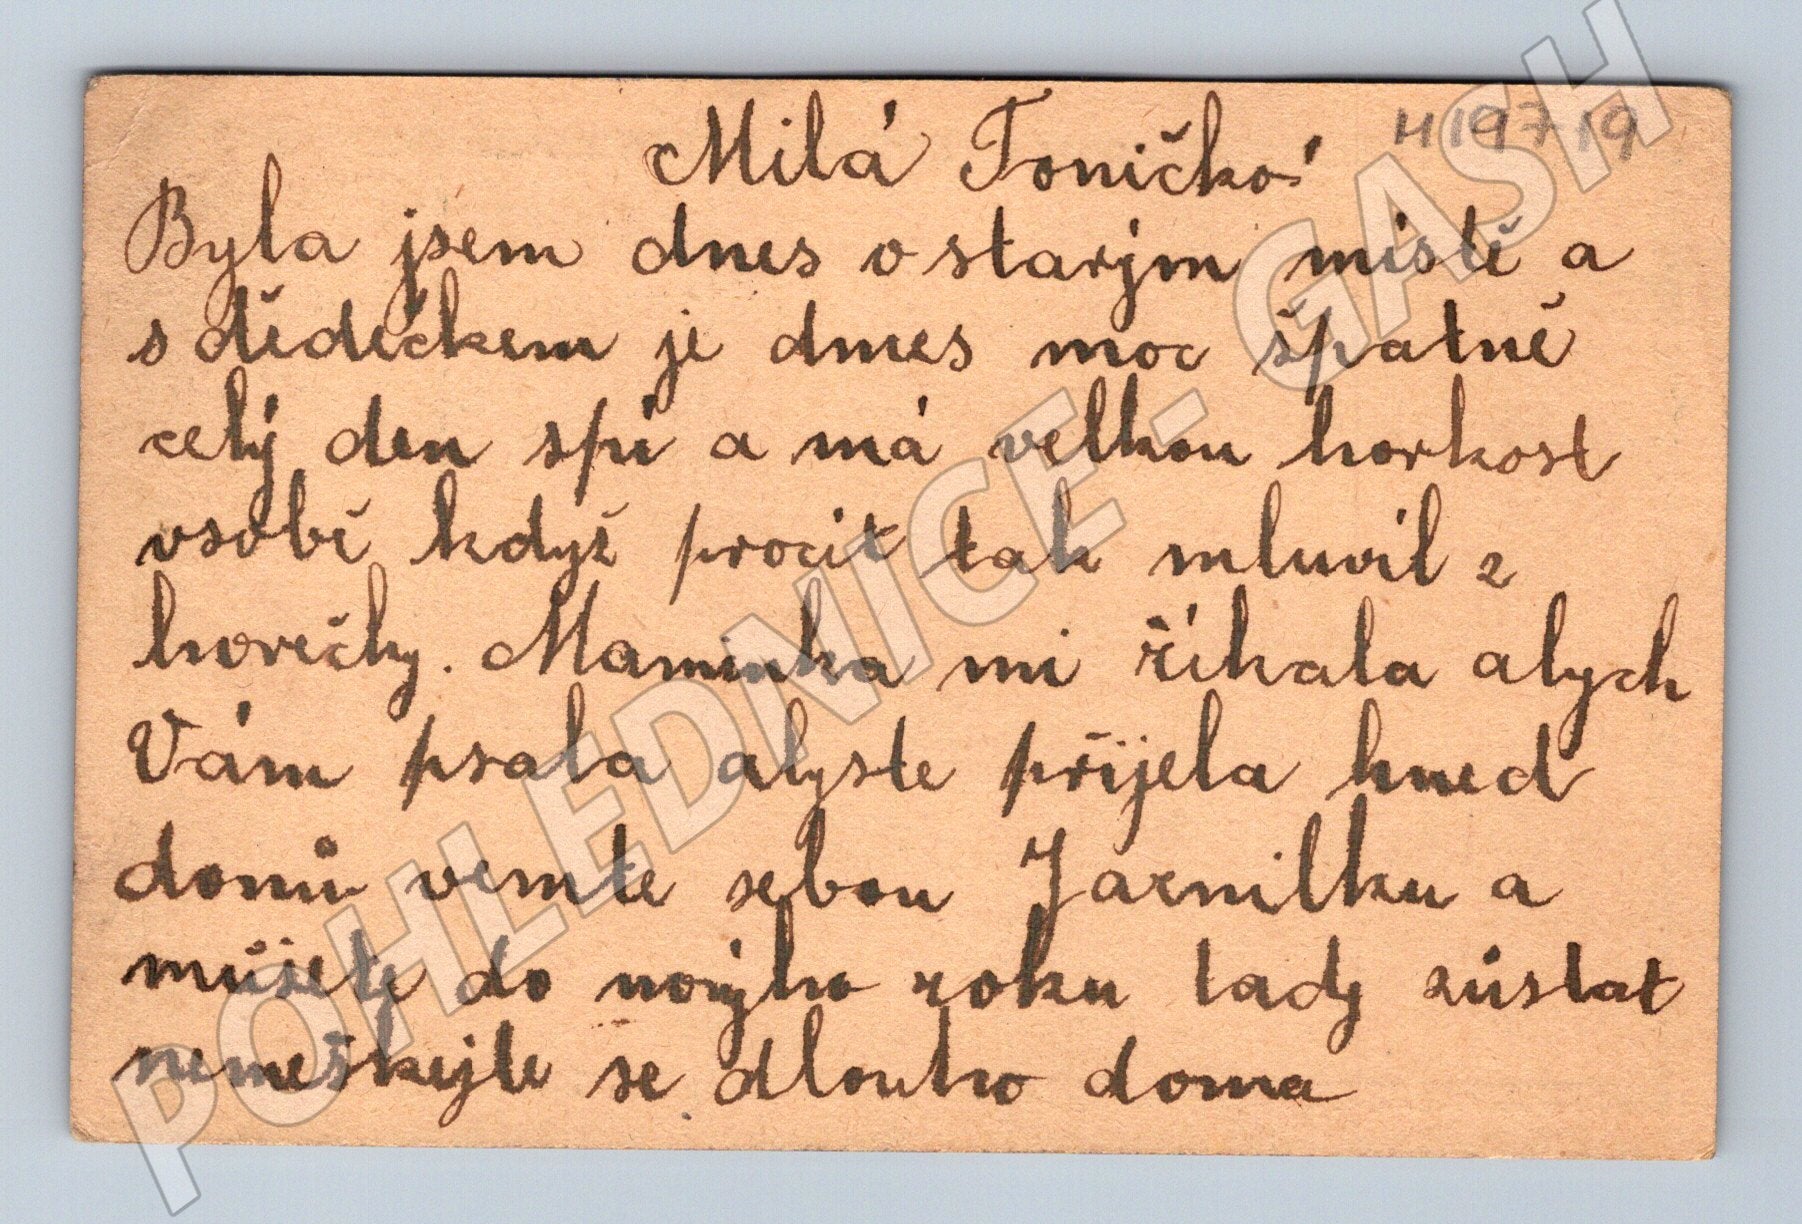 H19719
Milá Toničko!
Byla jsem dnes v starým místě a
s dědečkem je dnes moc špatně
celý den spí a má velkou horkost
vsobě když procit tak mluvil z
horečky. Maminka mi říkala abych
Vám psala abyste přijela hned
domů vemte sebou Jarmilku a
můžete do novýho roku tady zůstat
nemeškejte se dlouho doma
POHLEDNICE - GASH